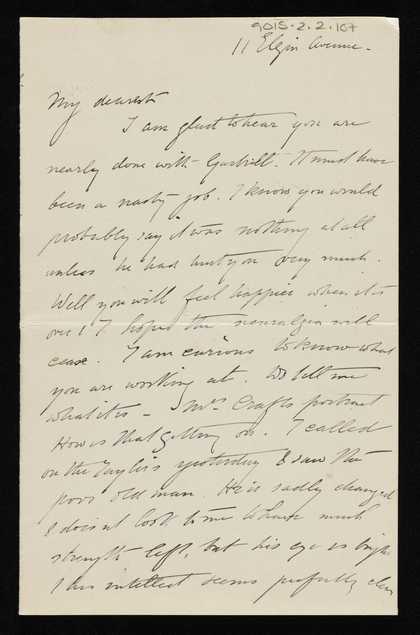 9015.2.2.107
11 Elgin Avenue.
My dearest
I am glad to hear you are
nearly done with It must have
been a nasty job. I know you would
probably say it was nothing at all
unless he had hurt you very much.
Well you will feel happier when it is
over & I hope the neuralgia will
cease. I am curious to know what
you are working at. Do tell me
what it is - Mrs Crafts portrait
How is that getting on. I called
on the yesterday & saw the
poor old man. He is sadly changed
& does not look to me to have much
strength left, but his eye is bright
& his intellect seems perfectly clear